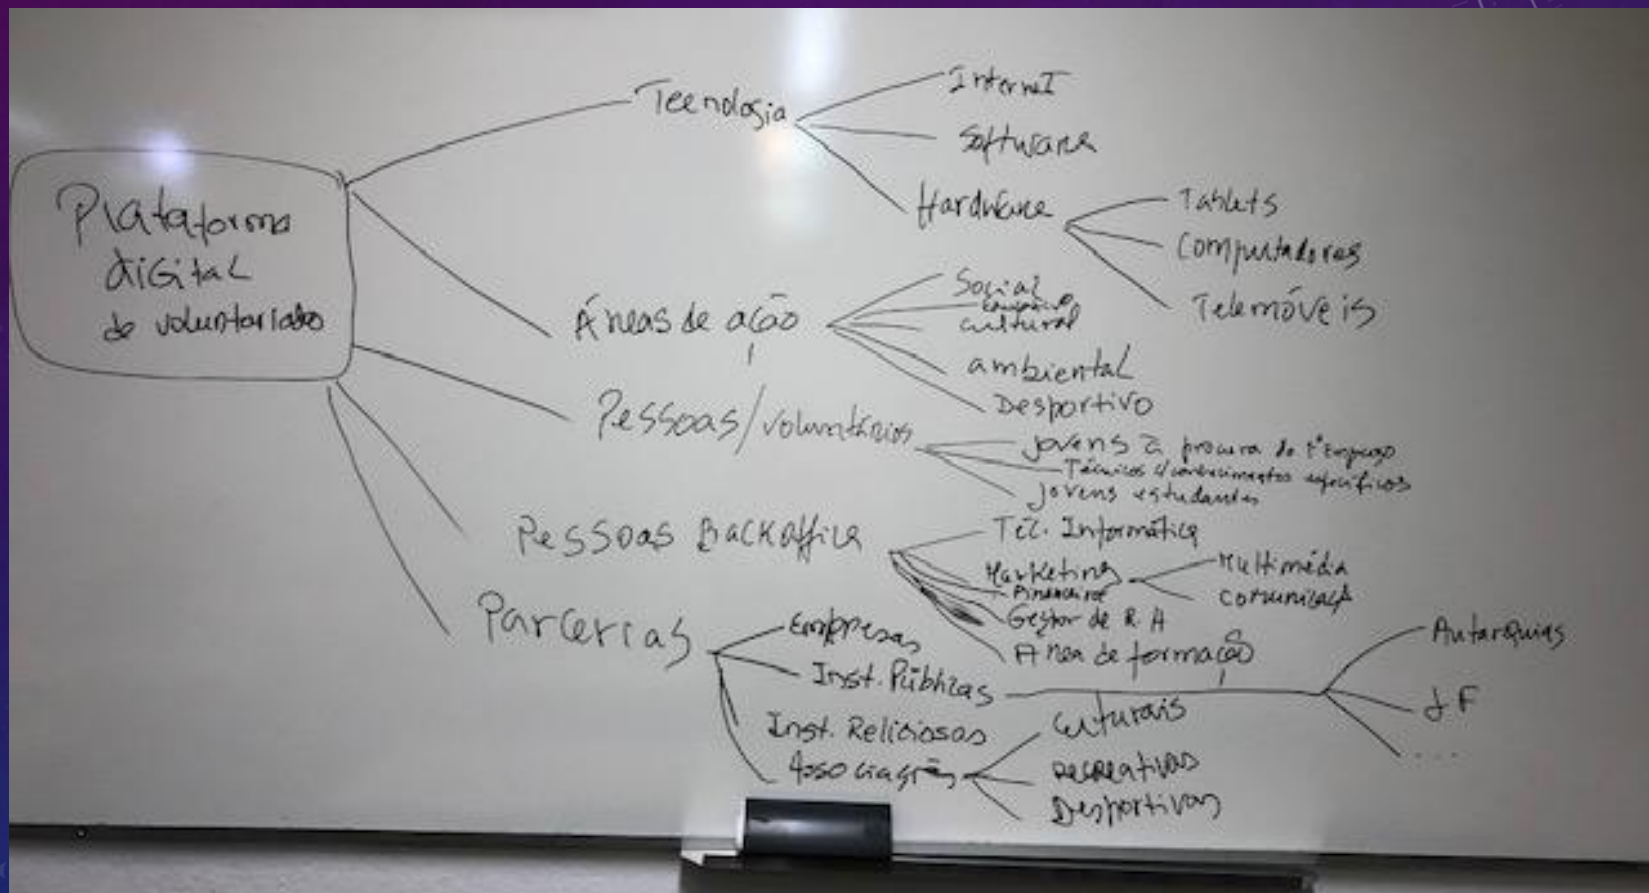 Plataforma
digital
de voluntariado
Tecnologia
Internet
Software
Hardware
Tablets
Computadores
Telemóveis
Áreas de ação
Social
cultural
ambiental
Desportivo
Pessoas/voluntários
jovens à procura do 1º Emprego
Técnicos c/conhecimentos específicos
jovens estudantes
Pessoas Backoffice
Téc. Informática
Marketing
Multimédia
comunicaçã
Financeiro
Gestor de R.H
Área de formação
Parcerias
Empresas
Inst. Públicas
Autarquias
J F
....
Inst. Religiosas
Associações
Culturais
recreativas
Desportivas